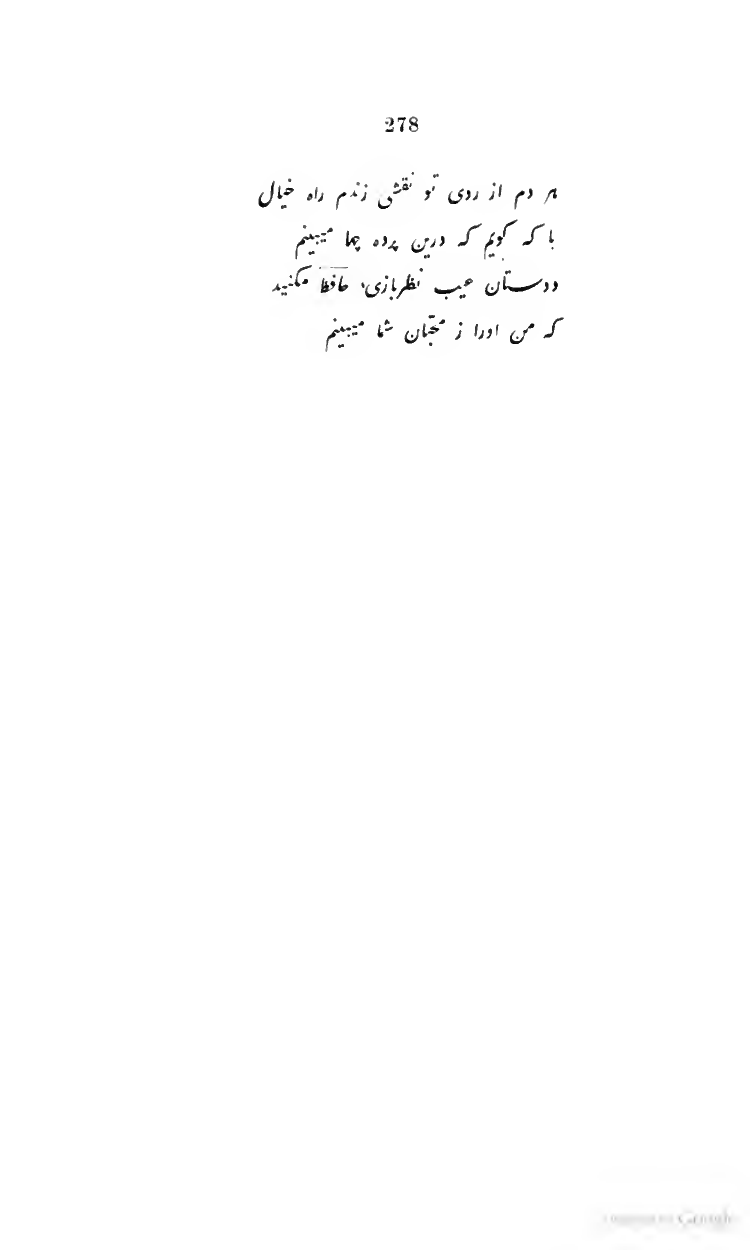 278
هر دم از روی تو نقشی زندم راه خیال
با که گویم که درین پرده چها میبینم
دوستان عیب نظربازیء حافظ مکنید
که من اورا ز محبّان شما میبینم
Google